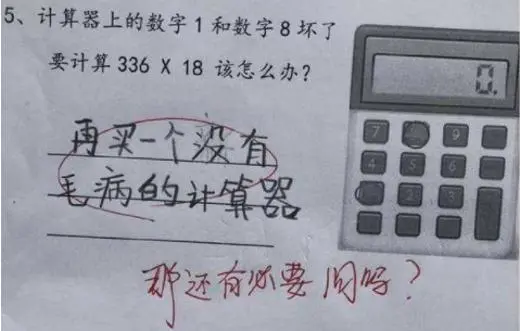 5、计算器上的数字1和数字8坏了
要计算336 X 18 该怎么办?
再买一个没有
毛病的计算器
那还有必要问吗?
0.
7
9
4
5
6
2
3